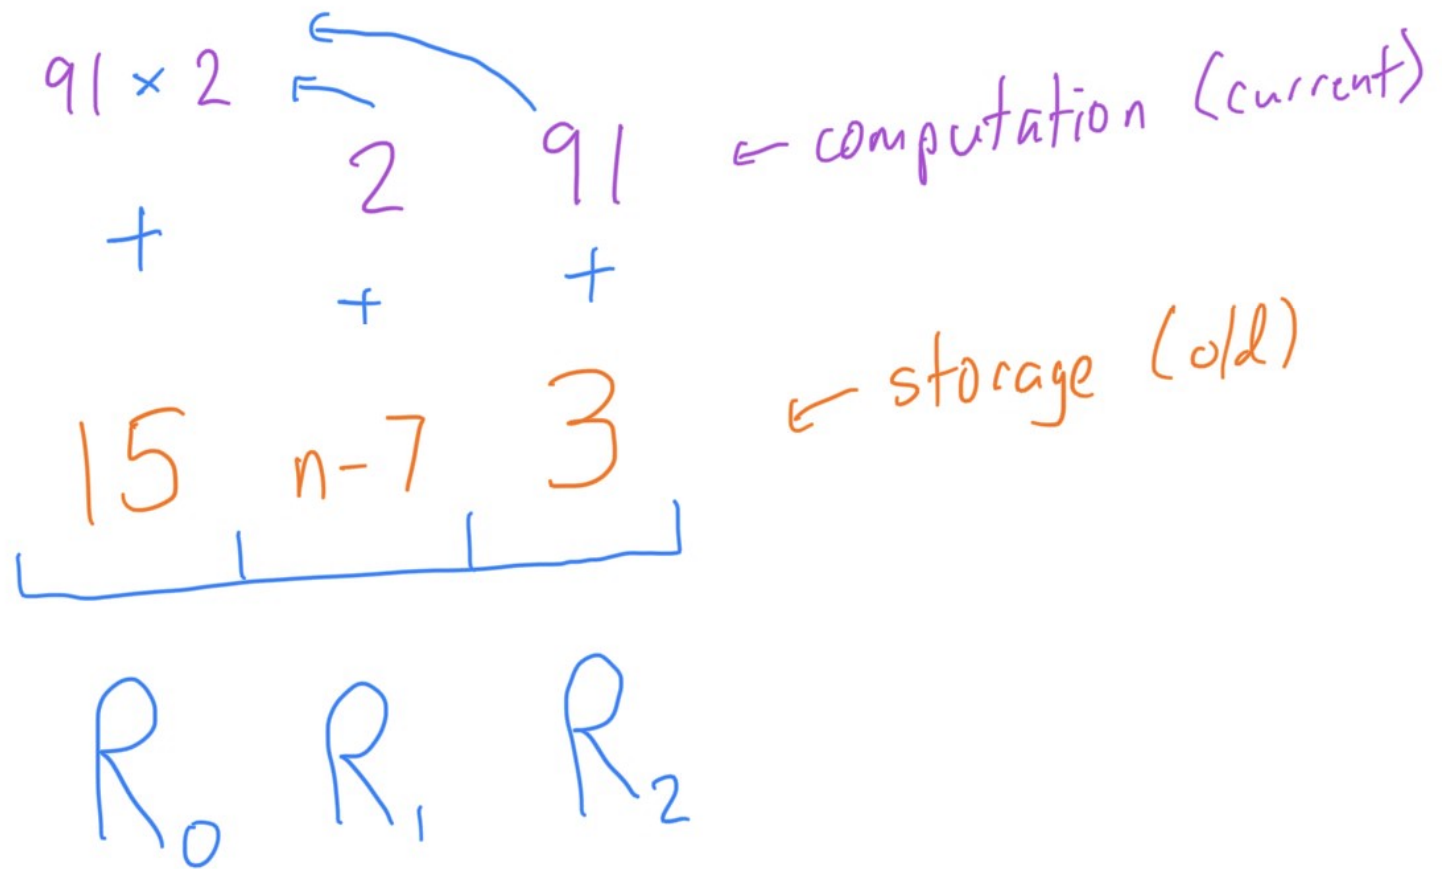 91 × 2
2 91 ← computation (current)
+ + +
15 n-7 3 ← storage (old)
R₀ R₁ R₂